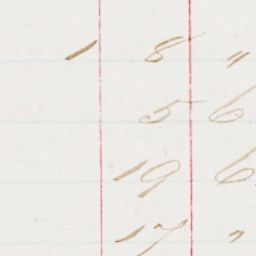 1 8 "
5 6
19 6
17 "